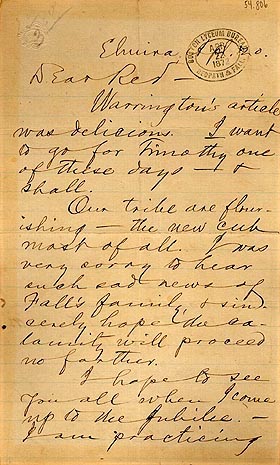 54.806
Elmira, Apl. 20.
BOSTON LYCEUM BUREAU
APR
22
1872
REDPATH & FALL
Dear Red —
Warrington's article
was delicious. I want
to go for Timothy one
of these days — &
shall.
Our tribe are flour-
ishing — the new cub
most of all. I was
very sorry to hear
such sad news of
Fall's family, & sin-
cerely hope the ca-
lamity will proceed
no farther.
I hope to see
you all when I come
up to the Jubilee. —
I am practicing